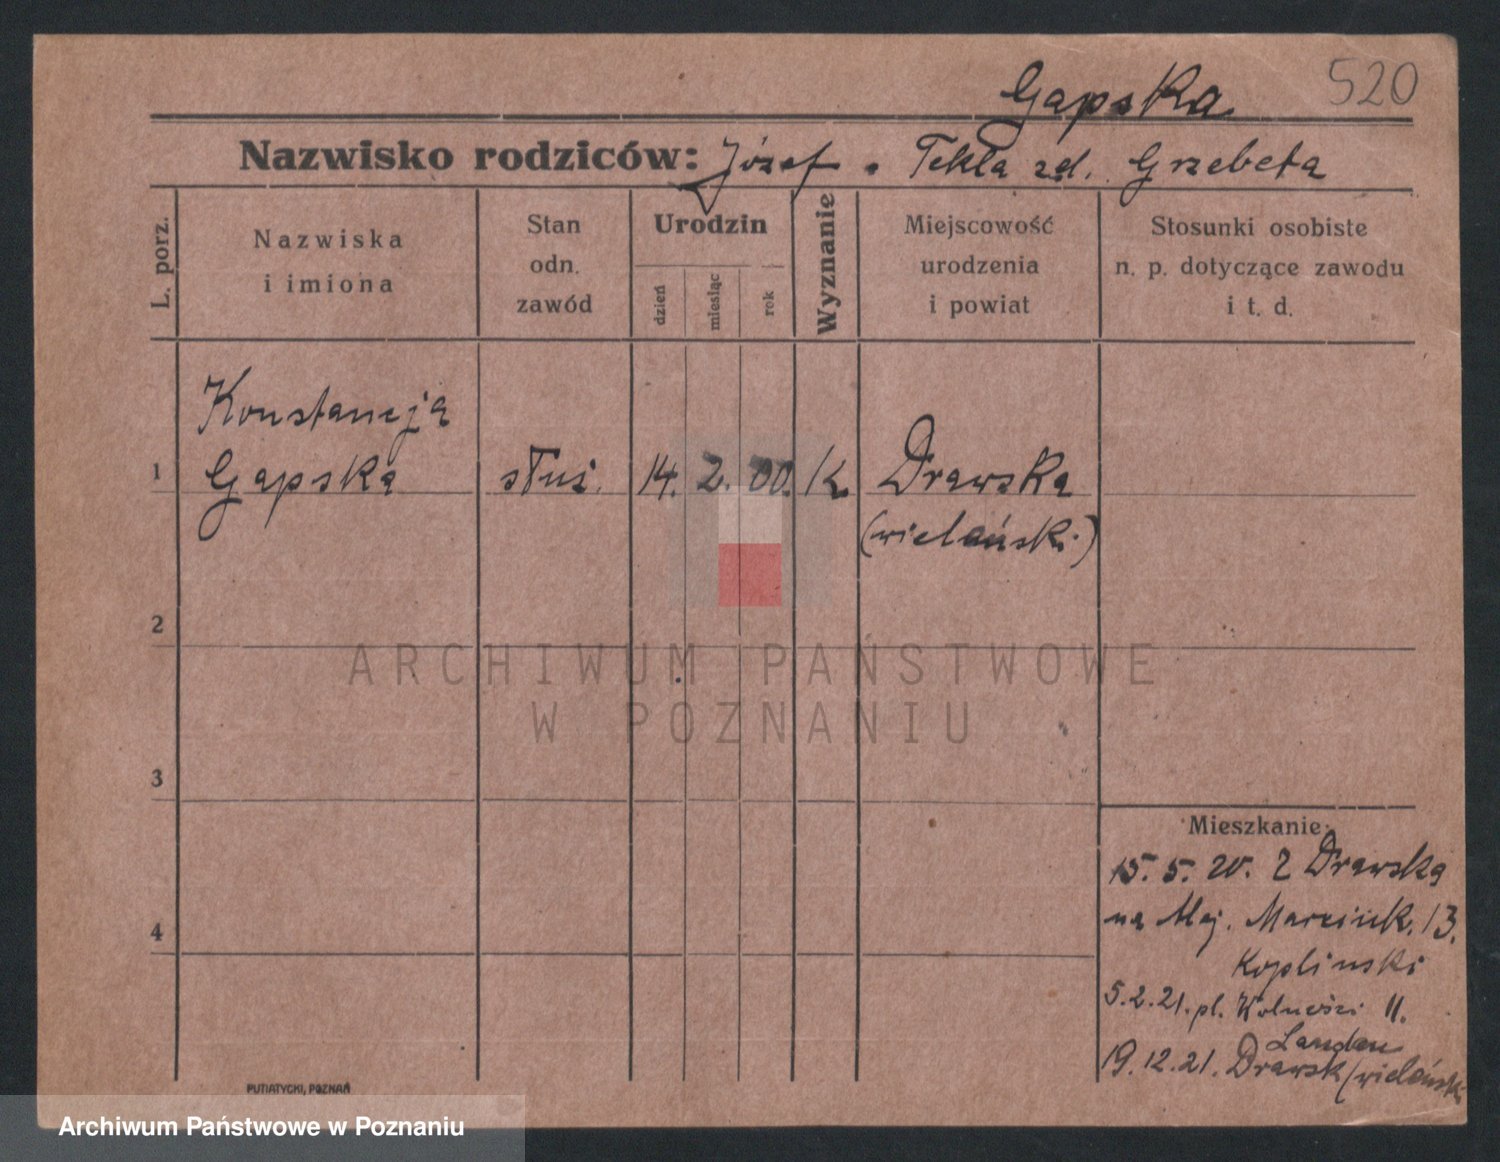 520
Gapska
Nazwisko rodziców: Józef . Tekla zd. Grzebeta
L. porz.
Nazwiska
i imiona
Stan
odn.
zawód
Urodzin
dzień
miesiąc
rok
Wyznanie
Miejscowość
urodzenia
i powiat
Stosunki osobiste
n. p. dotyczące zawodu
i t. d.
1
Konstancja
Gapska
służ.
14. 2. 00. K.
Drawska
(wieloński)
2
ARCHIWUM PAŃSTWOWE
W POZNANIU
3
4
Mieszkanie:
15. 5. 20. z Drawska
na Alej. Marcink. 13.
Koplinski
5.2.21. pl. Wolności 11.
Landau
19.12.21. Drawsk (wieloński
PUTIATYCKI, POZNAŃ
Archiwum Państwowe w Poznaniu